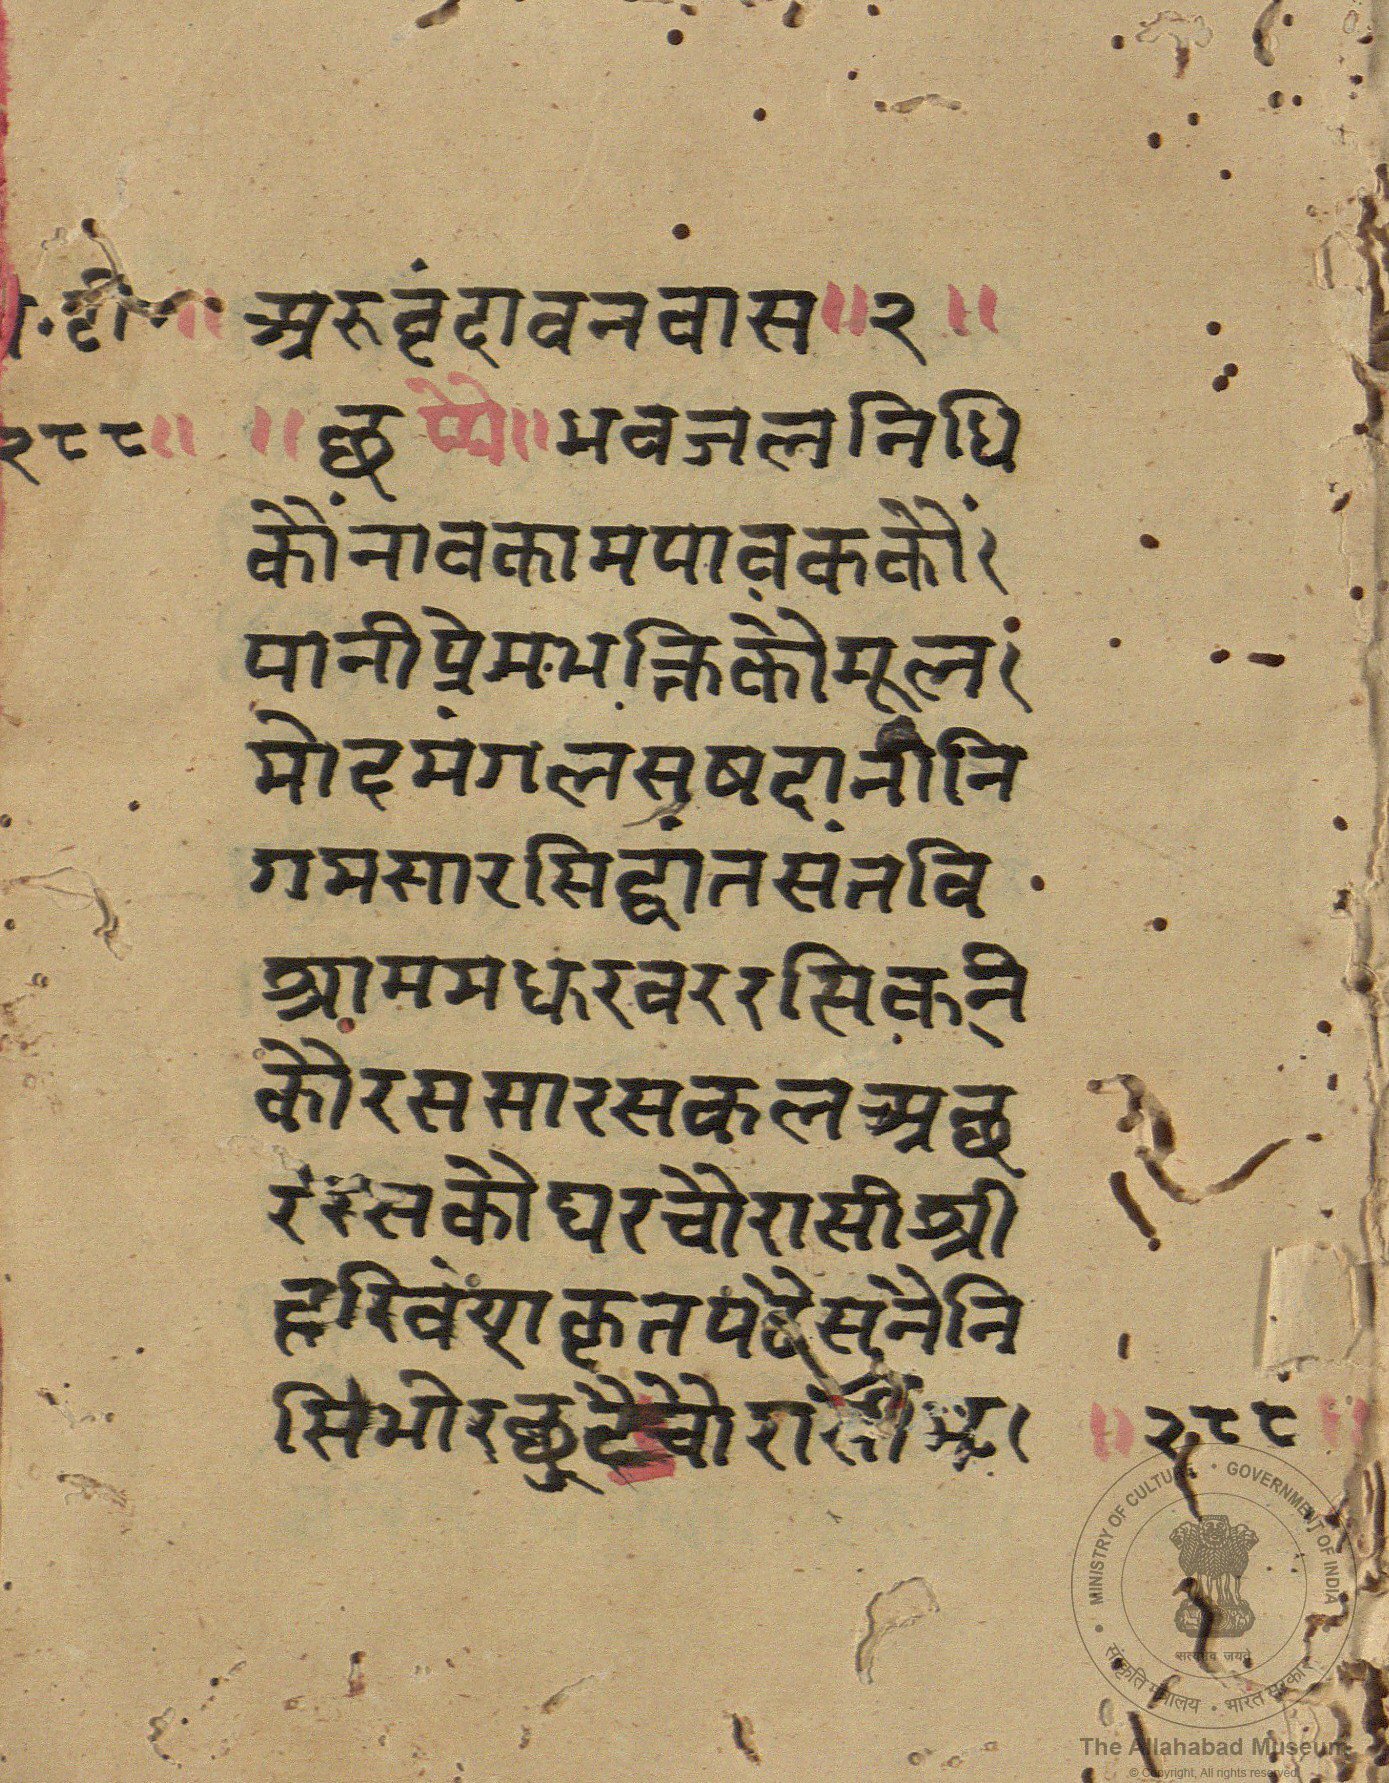 ॥ अरु वृंदावन वास ॥ २ ॥
२८८ ॥ ॥ छप्पै ॥ भव जल निधि
कौं नाव काम पावक कौं
पानी प्रेम भक्ति कौ मूल
मोद मंगल सुष दानी नि
गम सार सिद्धांत संत वि
श्राम मधुर वर रसिकनि
कौ रस सार सकल अछ्
र रस कौ घर चौरासी श्री
हरिवंश कृत पढै सुनै नि
सि भोर छुटै चौरासी ॥ २८८ ॥
MINISTRY OF CULTURE • GOVERNMENT OF INDIA
सत्यमेव जयते
संस्कृति मंत्रालय • भारत सरकार
The Allahabad Museum
© Copyright, All rights reserved